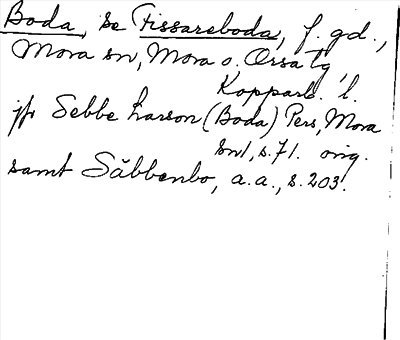 Boda, se Fissareboda, f. gd.,
Mora sn, Mora o. Orsa tg,
Kopparb. l.
jfr Sebbe Larson (Boda) Pers, Mora
sn1, s. 71. omg.
samt Säbbenbo, a.a., s. 203.